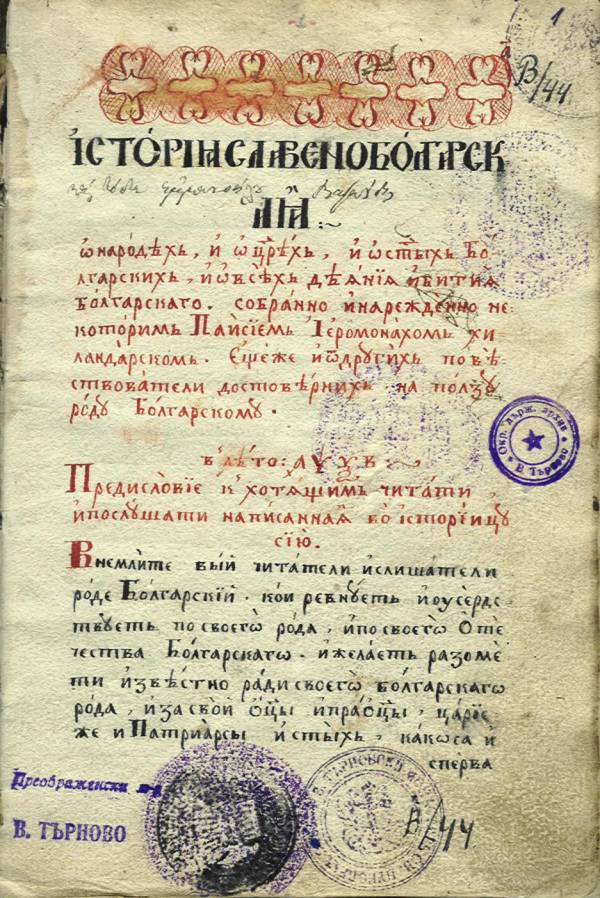 1
В/44
ИСТО́РІѦ СЛАВЕНОБО́ЛГАРСК
АѦ :~
ѡ наро́дѣхъ, и ѡ цр҃ѣхъ, и ѡ ст҃ыхъ Бо́
лгарскихъ, и ѡ всѣхъ дѣѧ́нїѧ и битиѧ
бо́лгарскаго. собранно и нарежденно не
которимъ Паи́сїемъ І҆еромона́хомъ хи
ланда́рскомъ. Є҆ще́же и ѿ други́хъ повѣ
ствова́тели достовѣ́рнихъ на по́лзу
ро́ду Бо́лгарскому.
в лѣ́то: ҂АѰѮВ ~
Предисло́вїе к хотѧ́щимъ чита́ти,
и послу́шати написаннаѧ во исторе́ицу
сїю.
Внемли́те вы́й чита́тели и сли́шатели
ро́де Бо́лгарскїй. кои ревну́етъ и оусе́рдс
твуетъ по своегѡ̀ рода, и по своегѡ̀ Оте́
чества Бо́лгарскагѡ. и жела́етъ разоме́
ти и извѣ́стно ра́ди своегѡ̀ болгарскагѡ
ро́да, и за свои́ ѻц҃ы и праѻц҃ы, царїе
же и Патриа́рсы и ст҃ыхъ, ка́ко са и
сперва
Окр. държ. архив
В. Търново
Преображенски м-р
В. ТЪРНОВО
В/44